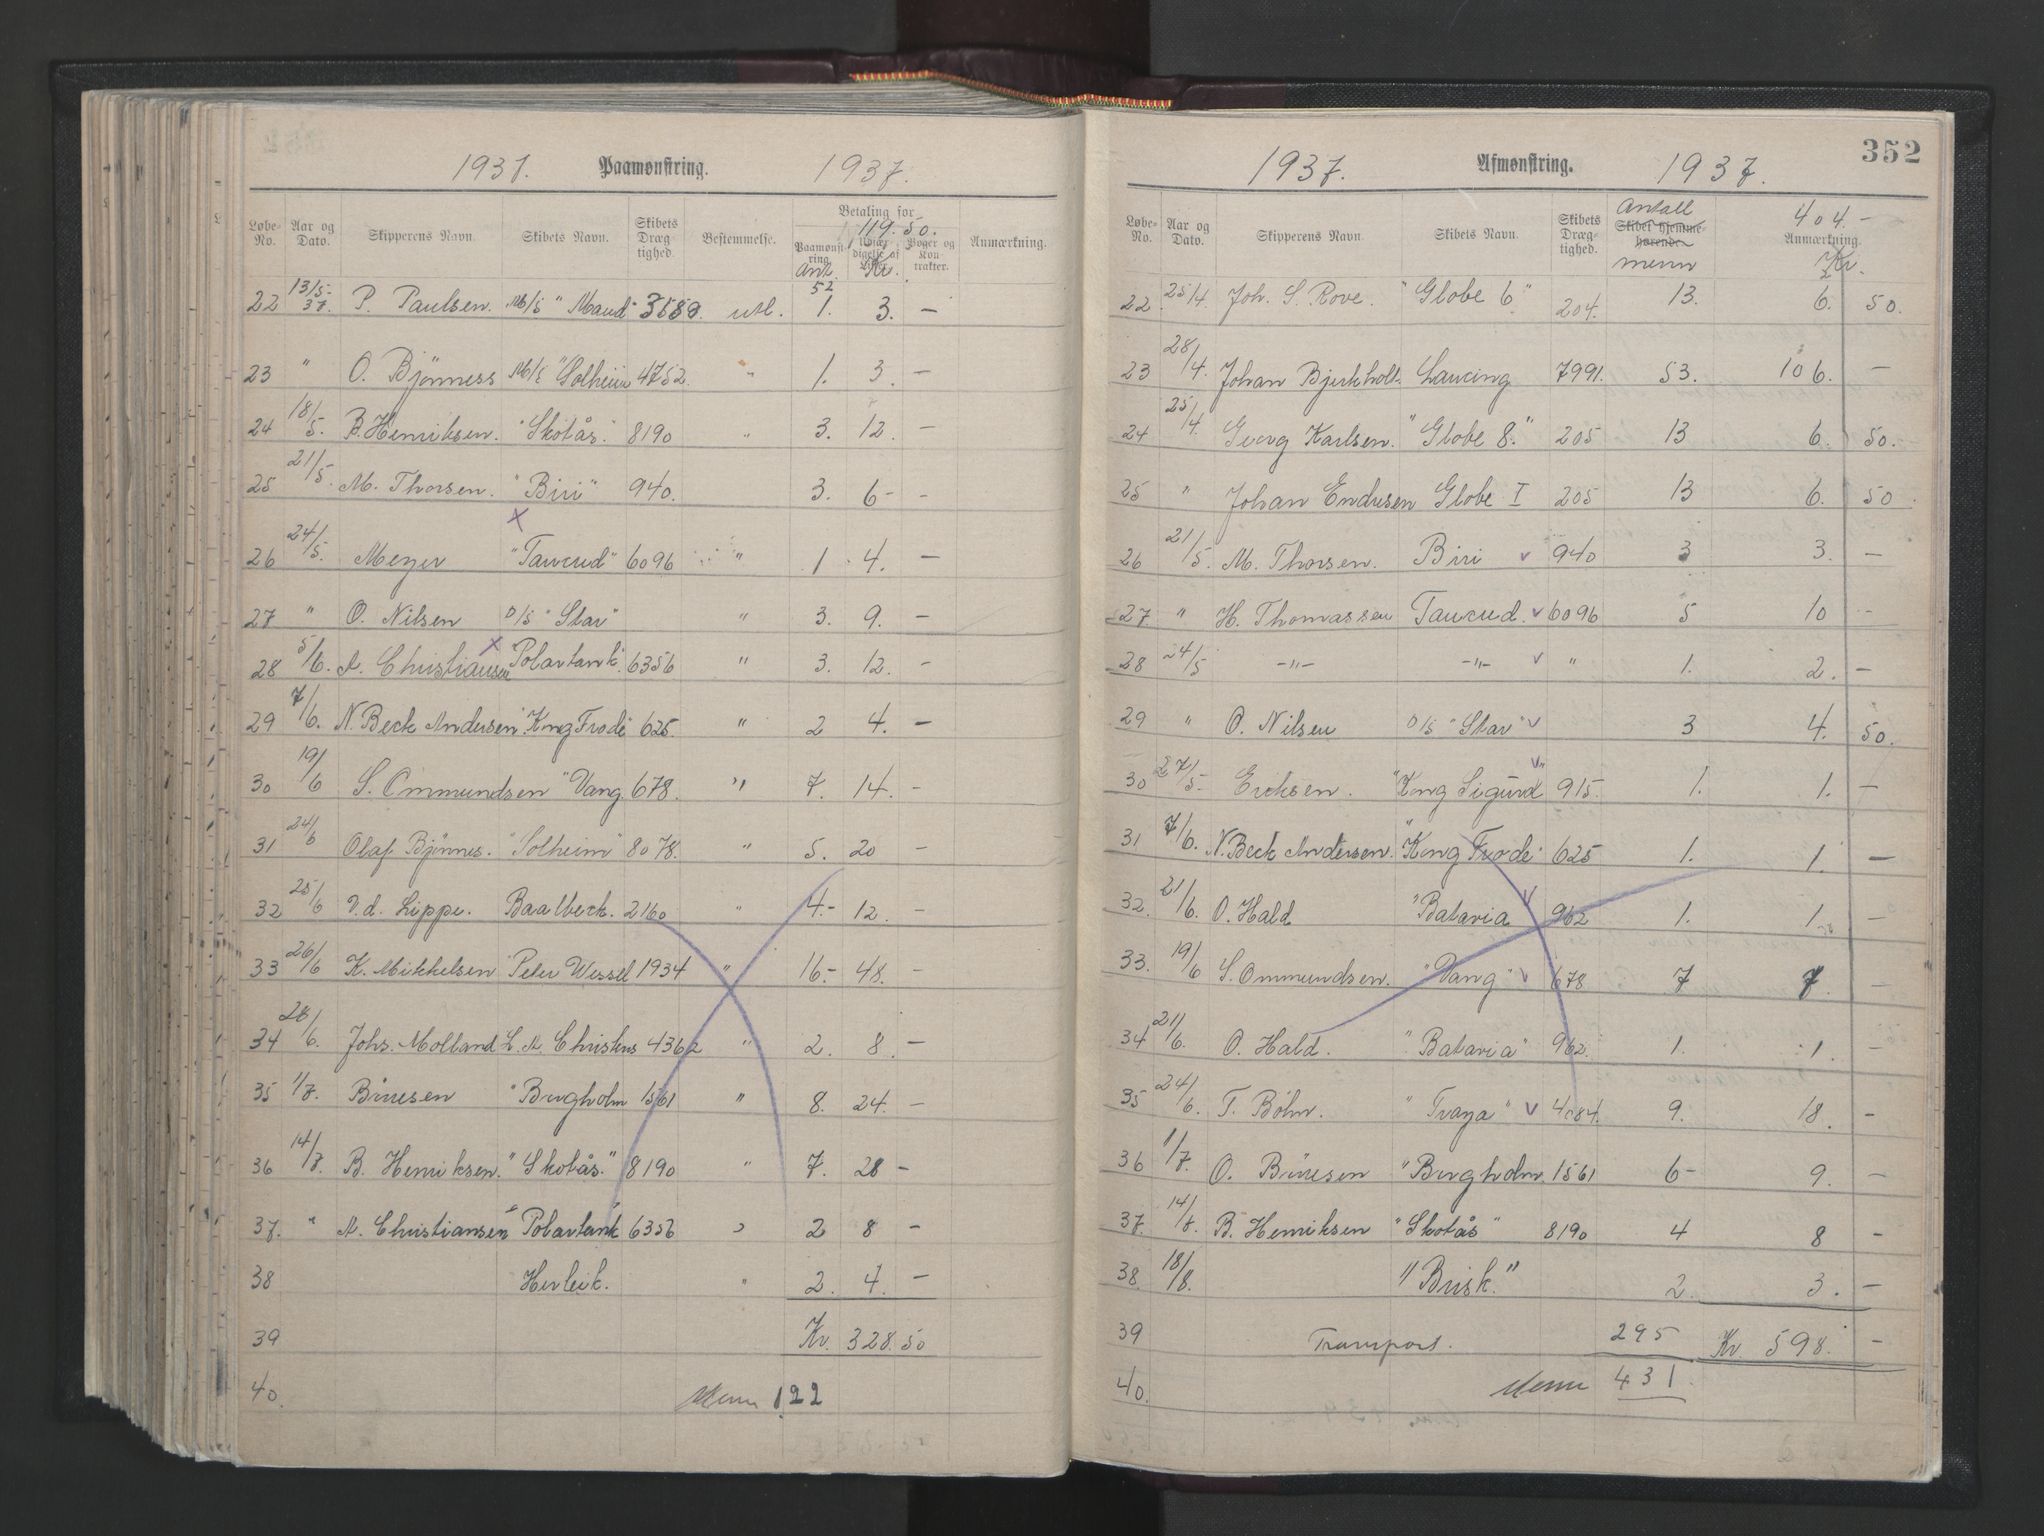 352
1937. Paamønstring. 1937.
Løbe-No. Aar og Dato. Skipperens Navn. Skibets Navn. Skibets Drægtighed. Bestemmelse. Betaling for Paamønstring Boger og Kontrakter. Anmærkning.
119.50.
Ant. Kr.
52
22 13/5-37. P. Paulsen. M/S "Maud" utl. 1. 3. –
23 " O. Bjönness M/S "Solheim 4752. " 1. 3. –
24 18/5. B. Henriksen. "Skotås" 8190 " 3. 12. –
25 21/5. M. Thorsen. "Biri" 940. 3. 6 – –
26 24/5. Meyer "Taurud" 6096 " 1 4. –
27 " O. Nilsen D/S "Star" " 3. 9. –
28 5/6. A. Christiansen "Polartank" 6356 " 3. 12. –
29 7/6. N. Beck Andersen "Kong Frode" 625. " 2 4. –
30 19/6 S. Ommundsen "Vang 678. " 7. 14. –
31 24/6 Olaf Bjönnes. "Solheim" 8078. " 5. 20 –
32 25/6 V.d. Lippe. Baalbeck. 2160 " 4.- 12. –
33 26/6 K. Mikkelsen Peter Wessel 1934 " 16- 48. –
34 28/6. Johs. Molland L. A. Christens 4362 " 2. 8. –
35 1/7. Büresen "Bergholm 1561 " 8. 24. –
36 14/7. B. Henriksen. "Skotås." 8190 " 7. 28 –
37. " A. Christiansen "Polartank" 6356 " 2 8 –
38 Herleik. " 2. 4. –
39 Kr. 328.50
40. Menn 122
1937. Afmønstring. 1937.
Løbe-No. Aar og Dato. Skipperens Navn. Skibets Navn. Skibets Drægtighed. Skibet hjemmehørende. Anmærkning.
Antall menn
404.-
Kr.
22. 25/4. Joh. S. Rove. "Globe 6" 204. 13. 6. 50.
23 28/4. Johan Bjerkholt. Lancing 7991. 53. 106. –
24 25/4. Georg Karlsen. "Globe 8." 205 13 6. 50.
25 " Johan Endresen Globe I 205 13 6. 50
26 21/5. M. Thorsen. Biri v 940 3 3. –
27 " H. Thomassen Taurud. v 6096 5 10 –
28 24/5 –"– –"– v " 1. 2. –
29 " O. Nilsen D/S "Star" v 3 4. 50.
30 27/5. Ericksen. "Kong Sigurd" v 915. 1. 1. –
31 7/6. N. Beck Andersen. "Kong Frode" 625 1. 1. –
32. 21/6. O. Hald "Batavia v 962 1. 1. –
33. 19/6 S. Ommundsen. "Vang" v 678 7 7. –
34 21/6. O. Hald. "Batavia" 962. 1. 1. –
35 24/6. T. Böhn. "Traya" v 4084. 9. 18. –
36 1/7. O. Büresen "Bergholm 1561 6- 9. –
37. 14/7. B. Henriksen "Skotås" 8190 4 8 –
38. 18/8. "Brisk." 2. 3. –
39 Transport. 295 Kr. 598. –
40. Menn 431.